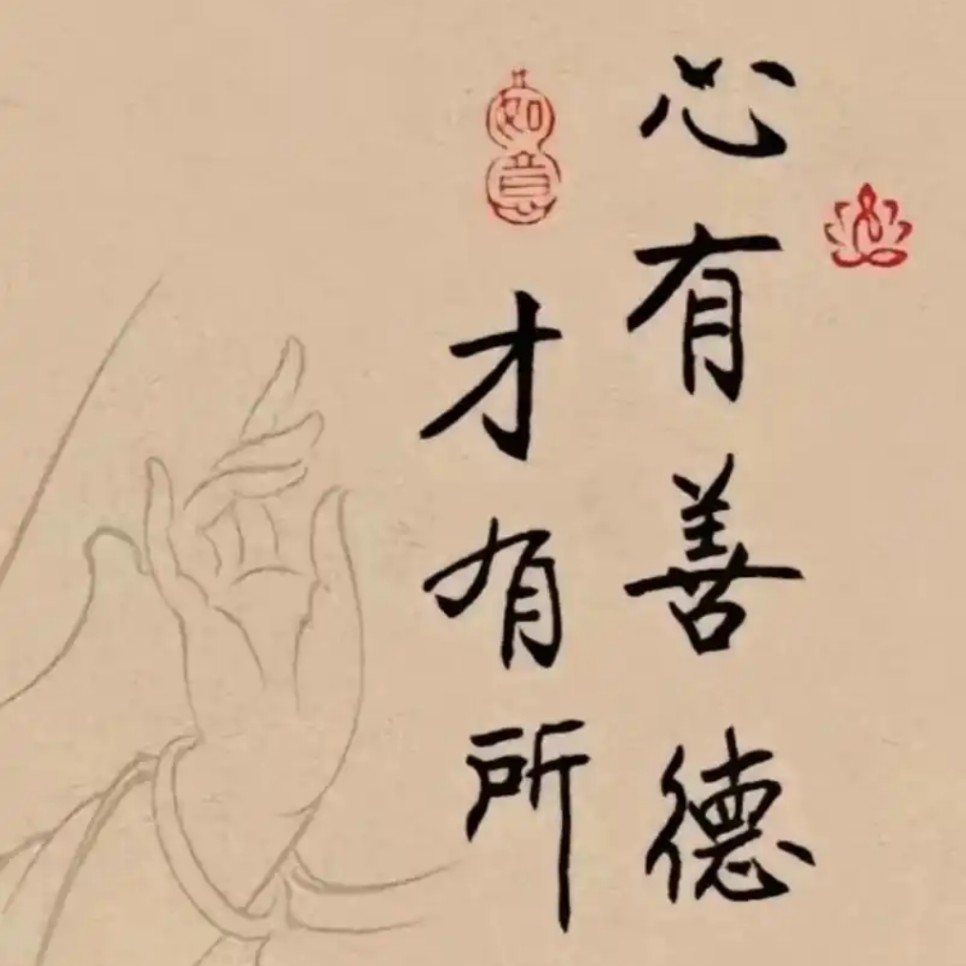 心有善德
如意
才有所